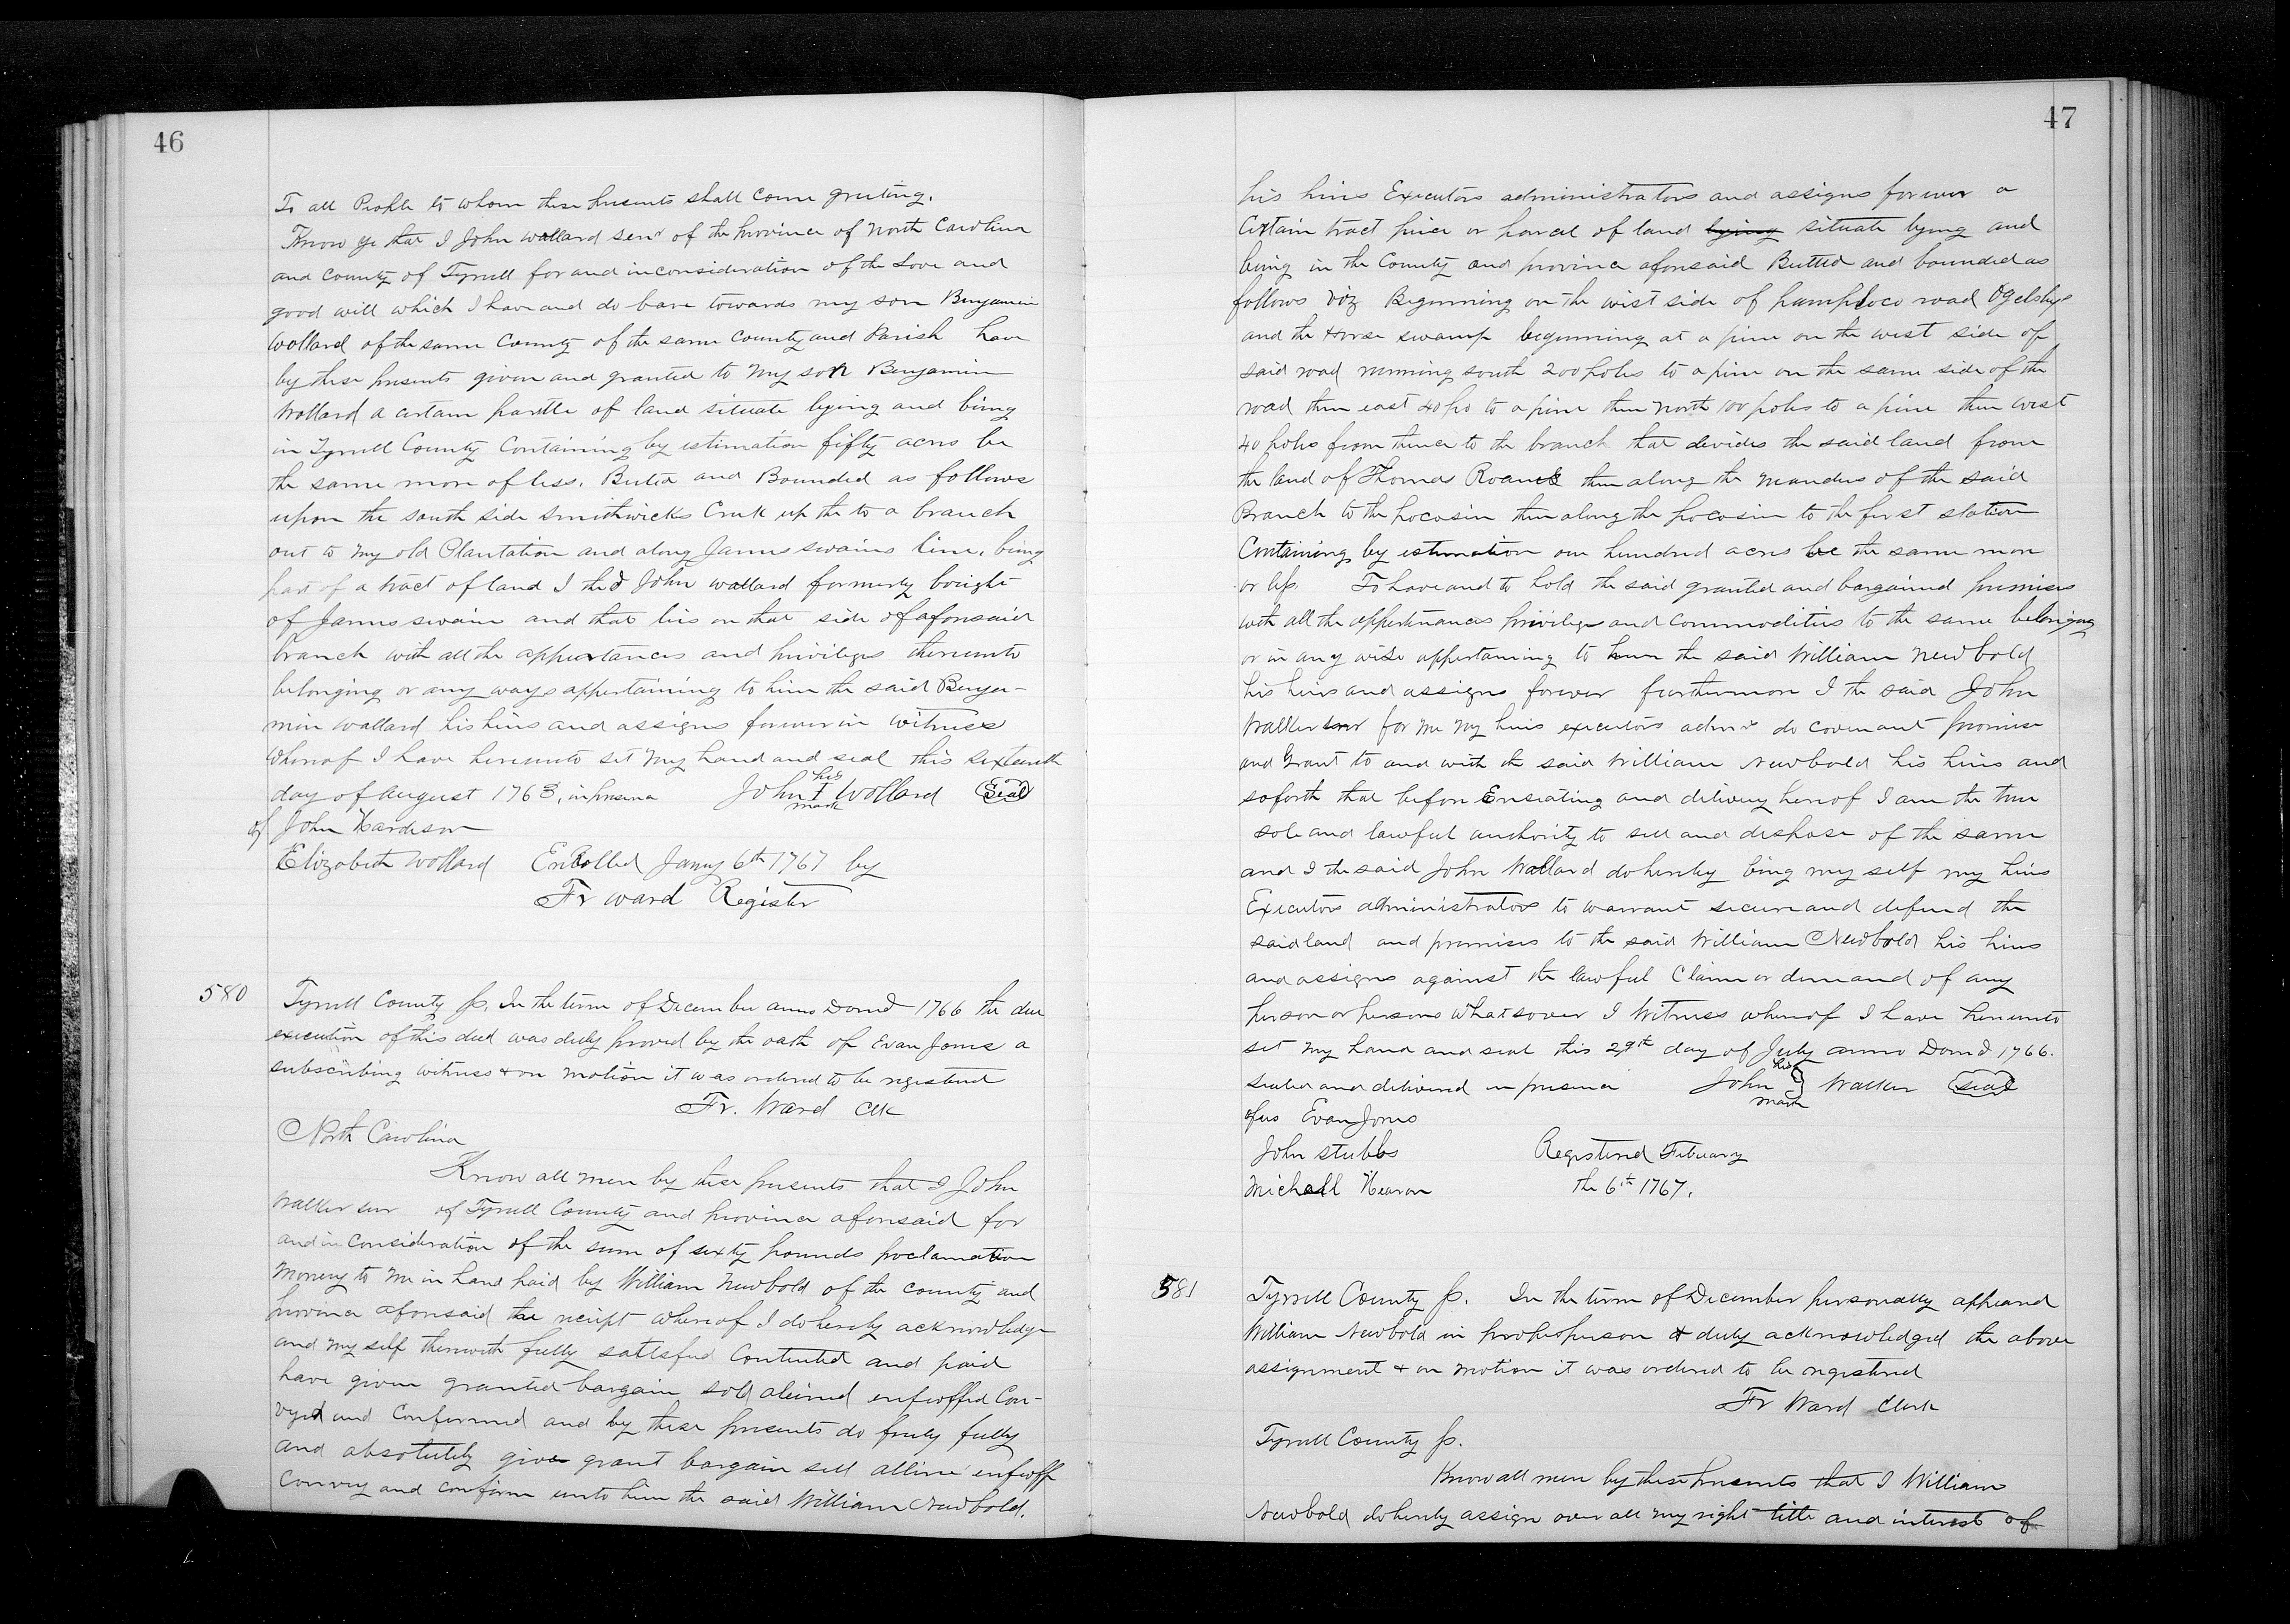 46
To all People to whom these presents shall come greeting.
Know ye that I John wollard senr of the province of North Carolina
and County of Tyrrell for and in consideration of the Love and
good will which I have and do bare towards my son Benjamin
Wollard of the same County of the same County and Parish have
by these presents given and granted to my son Benjamin
Wollard a certain parcele of land situate lying and being
in Tyrrell County Containing by estimation fifty acres be
the same more of less. Buted and Bounded as follows
upon the south side Smithwicks Creek up the to a branch
out to my old Plantation and along James swains line, being
part of a tract of land I the John wallard formerly bought
of James swain and that lies on that side of aforesaid
branch with all the appurtances and privileges thereunto
belonging or any ways appertaining to him the said Benja-
min wallard his heirs and assigns forever in witness
whereof I have hereunto set my hand and seal this sixteenth
day of August 1763, in presence John his mark Wollard Seal
of John Hardison
Elizabeth Wollard Enrolled Jany 6th 1767 by
Fr ward Register
580
Tyrrell County Ss. In the term of December anno Domd 1766 the due
execution of this deed was duly proved by the oath of Evan Jones a
subscribing witness & on motion it was ordered to be registered
Fr. Ward Clk
North Carolina
Know all men by these presents that I John
Walker senr of Tyrrell County and province aforesaid for
and in Consideration of the sum of sixty pounds proclamation
Money to me in hand paid by William Newbold of the county and
province aforesaid the reciept whereof I do hereby acknowledge
and my self therewith fully sattsfied Contented and paid
have given granted bargain sold aleined enfeoffed Con-
vyed and Confirmed and by these presents do freely fully
and absolutely give grant bargain sell alline enfeoff
Convey and confirm unto him the said William Newbold.
47
his heirs Executors administrators and assigns forever a
Certain tract piece or parcel of land lying situate lying and
being in the County and province aforesaid Butted and bounded as
follows viz Beginning on the west side of pamploco road Ogelsbys
and the Horse swamp beginning at a pine on the west side of
said road running south 200 poles to a pine on the same side of the
road then east 40 po to a pine then North 100 poles to a pine then West
40 poles from thence to the branch that devides the said land from
the land of Thomas then along the Manders of the said
Branch to the pocosin then along the pocosin to the first station
Containing by estimation one hundred acres be the same more
or less. To have and to hold the said granted and bargained premises
with all the appertinances privileges and Commodities to the same belonging
or in any wise appertaining to him the said William Newbold
his heirs and assigns forever furthermore I the said John
Walker senr for me my heirs executors admrs do covenant promise
and Grant to and with the said William Newbold his heirs and
soforth that before Enseating and delivery hereof I am the true
sole and lawful authority to sell and dispose of the same
and I the said John Wallard do hereby bing my self my heirs
Executors administrators to warrant secure and defend the
said land and premises to the said William Newbold his heirs
and assigns against the lawful Claim or demand of any
person or persons Whatsover I Witness whereof I have hereunto
set my hand and seal this 29th day of July anno Domd 1766.
Sealed and delivered in presence John his mark Walker seal
of us Evan Jones
John Stubbs Registered February
Michall Hearon the 6th 1767.
581
Tyrrell County Ss. In the term of December personally appeared
William Newbold in proper person & duly acknowledged the above
assignment & on motion it was ordered to be registered
Fr Ward Clerk
Tyrrell County Ss.
Know all men by these presents that I William
Newbold do hereby assign over all my right title and interest of